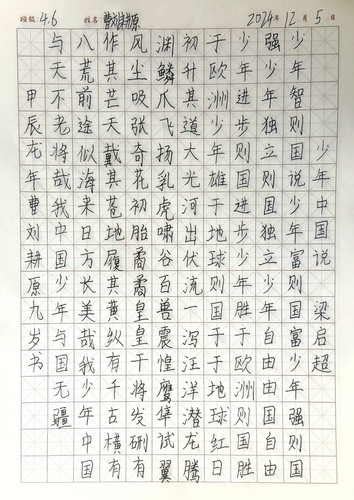 班级:4.6 姓名 曹刘耕原 2024年12月5日
少年中国说 梁启超
少年智则国说少年富则国富少年强则国
强少年独立则国独立少年自由则国自由
少年进步则国进步少年胜于欧洲则国胜
于欧洲少年雄于地球则国于于地球红日
初升其道大光河出伏流一泻汪洋潜龙腾
渊鳞爪飞扬乳虎啸谷百兽震惶鹰隼试翼
风尘吸张奇花初胎矞矞皇皇干将发硎有
作其芒天戴其苍地履其黄纵有千古横有
八荒前途似海来日方长美哉我少年中国
与天不老将哉我中国少年与国无疆
甲辰龙年曹刘耕原九岁书